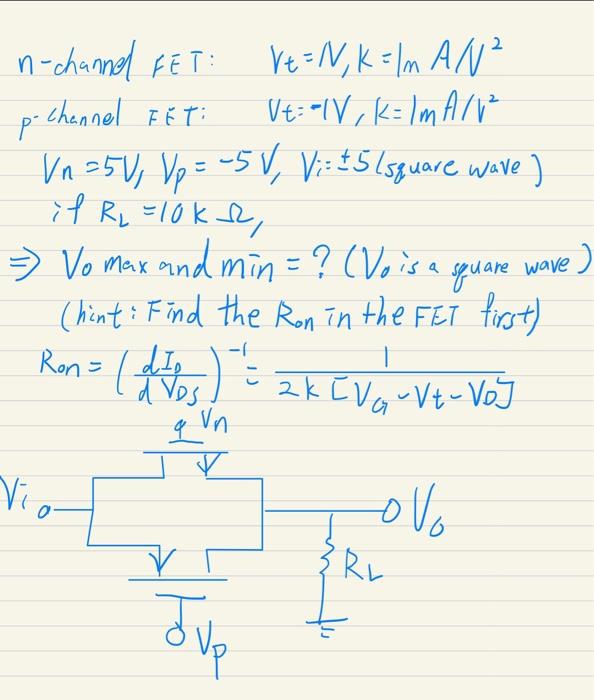 n-channel FET: Vt=1V, k=1m A/V²
p-channel FET: Vt=-1V, k=1mA/V²
Vn=5V, Vp=-5V, Vi=±5(square wave)
if RL=10kΩ,
⇒ Vo max and min=? (Vo is a square wave)
(hint: Find the Ron in the FET first)
Ron = (dID/dVDS)⁻¹ = 1/2k[VG-Vt-VD]
Vn
Vi
Vo
RL
Vp